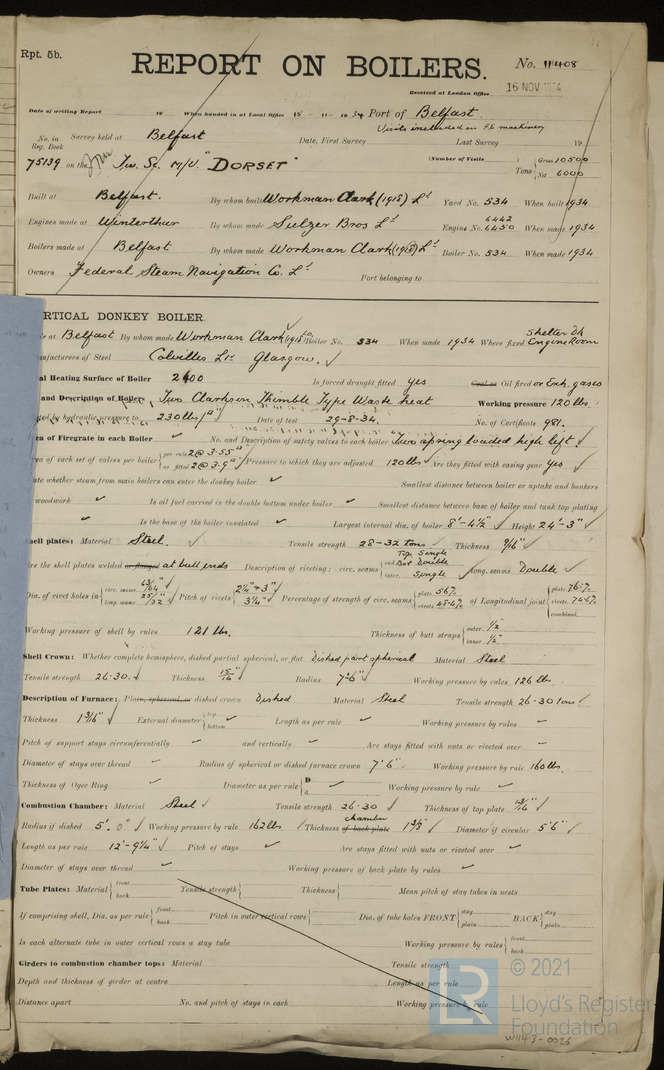 Rpt. 5b.
REPORT ON BOILERS.
No. 11408
Received at London Office 16 NOV 1934
Date of writing Report 19 When handed in at Local Office 15 - 11 - 1934 Port of Belfast.
No. in Reg. Book Survey held at Belfast Date, First Survey Visits included in F.E. machinery Last Survey 19
75139 on the Tw. Sc. M/V. "DORSET" (Number of Visits ) Tons Gross 10500 Net 6000
Built at Belfast. By whom built Workman Clark (1918) Ld Yard No. 534 When built 1934
Engines made at Winterthur By whom made Sulzer Bros Ld Engine No. 6442 6450 When made 1934
Boilers made at Belfast By whom made Workman Clark (1918) Ld Boiler No. 534 When made 1934
Owners Federal Steam Navigation Co. Ld Port belonging to
VERTICAL DONKEY BOILER.
at Belfast By whom made Workman Clark (1918) Ld Boiler No. 534 When made 1934 Where fixed Shelter Dk Engine Room
Manufacturers of Steel Colvilles Ld Glasgow. ✓
Total Heating Surface of Boiler 2400 Is forced draught fitted yes Coal or Oil fired or Exh. gases
and Description of Boilers Two Clarkson Thimble Type Waste heat Working pressure 120 lbs.
Tested by hydraulic pressure to 230 lbs/□" Date of test 29-8-34. No. of Certificate 981.
Area of Firegrate in each Boiler ✓ No. and Description of safety valves to each boiler two spring loaded high lift ✓
Area of each set of valves per boiler per rule 2@3.55" as fitted 2@3.9" ✓ Pressure to which they are adjusted 120 lbs ✓ Are they fitted with easing gear yes ✓
State whether steam from main boilers can enter the donkey boiler ✓ Smallest distance between boiler or uptake and bunkers
woodwork ✓ Is oil fuel carried in the double bottom under boiler ✓ Smallest distance between base of boiler and tank top plating
✓ Is the base of the boiler insulated ✓ Largest internal dia. of boiler 8'-4½" ✓ Height 24'-3" ✓
Shell plates: Material Steel. ✓ Tensile strength 28-32 tons. Thickness 9/16" ✓
Are the shell plates welded or flanged at butt ends Description of riveting: circ. seams end Top Single Bot Double inter. Single long. seams Double ✓
Dia. of rivet holes in circ. seams 63/64" long. seams 25/32" ✓ Pitch of rivets 2¼" + 3" 3¼" ✓ Percentage of strength of circ. seams plate 56% rivets 48.4% of Longitudinal joint plate 76.% rivets 74.4% combined
Working pressure of shell by rules 121 lbs. Thickness of butt straps outer ½" inner ½"
Shell Crown: Whether complete hemisphere, dished partial spherical, or flat Dished part spherical Material Steel
Tensile strength 26-30. ✓ Thickness 15/16" ✓ Radius 7'-6" ✓ Working pressure by rules 126 lbs
Description of Furnace: Plain, spherical, or dished crown Dished Material Steel Tensile strength 26-30 tons ✓
Thickness 1 3/16" ✓ External diameter top bottom ✓ Length as per rule ✓ Working pressure by rules ✓
Pitch of support stays circumferentially ✓ and vertically ✓ Are stays fitted with nuts or riveted over ✓
Diameter of stays over thread ✓ Radius of spherical or dished furnace crown 7'6" ✓ Working pressure by rule 160 lbs.
Thickness of Ogee Ring ✓ Diameter as per rule D d ✓ Working pressure by rule ✓
Combustion Chamber: Material Steel ✓ Tensile strength 26-30 ✓ Thickness of top plate 13/16" ✓
Radius if dished 5'. 0" ✓ Working pressure by rule 162 lbs ✓ Thickness of back plate chamber 1 3/8" ✓ Diameter if circular 5'6" ✓
Length as per rule 12'-9¼" ✓ Pitch of stays ✓ Are stays fitted with nuts or riveted over ✓
Diameter of stays over thread ✓ Working pressure of back plate by rules ✓
Tube Plates: Material front back Tensile strength Thickness Mean pitch of stay tubes in nests
If comprising shell, Dia. as per rule front back Pitch in outer vertical rows Dia. of tube holes FRONT stay plain BACK stay plain
Is each alternate tube in outer vertical rows a stay tube Working pressure by rules front back
Girders to combustion chamber tops: Material Tensile strength
Depth and thickness of girder at centre Length as per rule
Distance apart No. and pitch of stays in each Working pressure by rule
© 2021
Lloyd's Register
Foundation
LR
W1148-0026